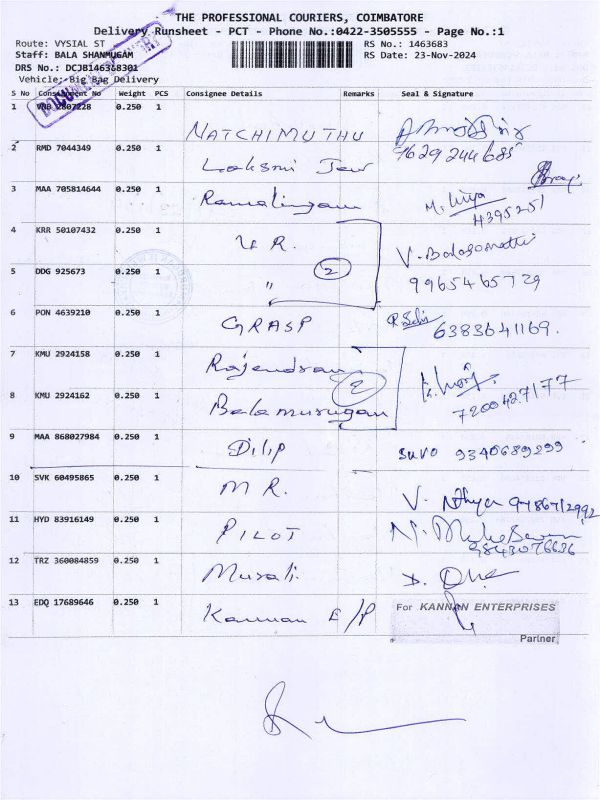 THE PROFESSIONAL COURIERS, COIMBATORE
Delivery Runsheet - PCT - Phone No.:0422-3505555 - Page No.:1
Route: VYSIAL ST RS No.: 1463683
Staff: BALA SHANMUGAM RS Date: 23-Nov-2024
DRS No.: DCJB146368301
Vehicle: Big Bag Delivery
S No Consignment No Weight PCS Consignee Details Remarks Seal & Signature
1 VNB 2807228 0.250 1 NATCHIMUTHU
2 RMD 7044349 0.250 1 Lakshmi 9629244685
3 MAA 705814644 0.250 1 Ramalingam 4395251
4 KRR 50107432 0.250 1 U.R. V. Balagomathi
5 DDG 925673 0.250 1 " 2 9965465729
6 PON 4639210 0.250 1 GRASP 6383641169.
7 KMU 2924158 0.250 1 Rajendran
8 KMU 2924162 0.250 1 Balamurugan 2 7200427177
9 MAA 868027984 0.250 1 DILIP 9340689299
10 SVK 60495865 0.250 1 M R.
11 HYD 83916149 0.250 1 PILOT 9843076636
12 TRZ 360084859 0.250 1 Murali
13 EDQ 17689646 0.250 1 Kannan E/P For KANNAN ENTERPRISES
Partner